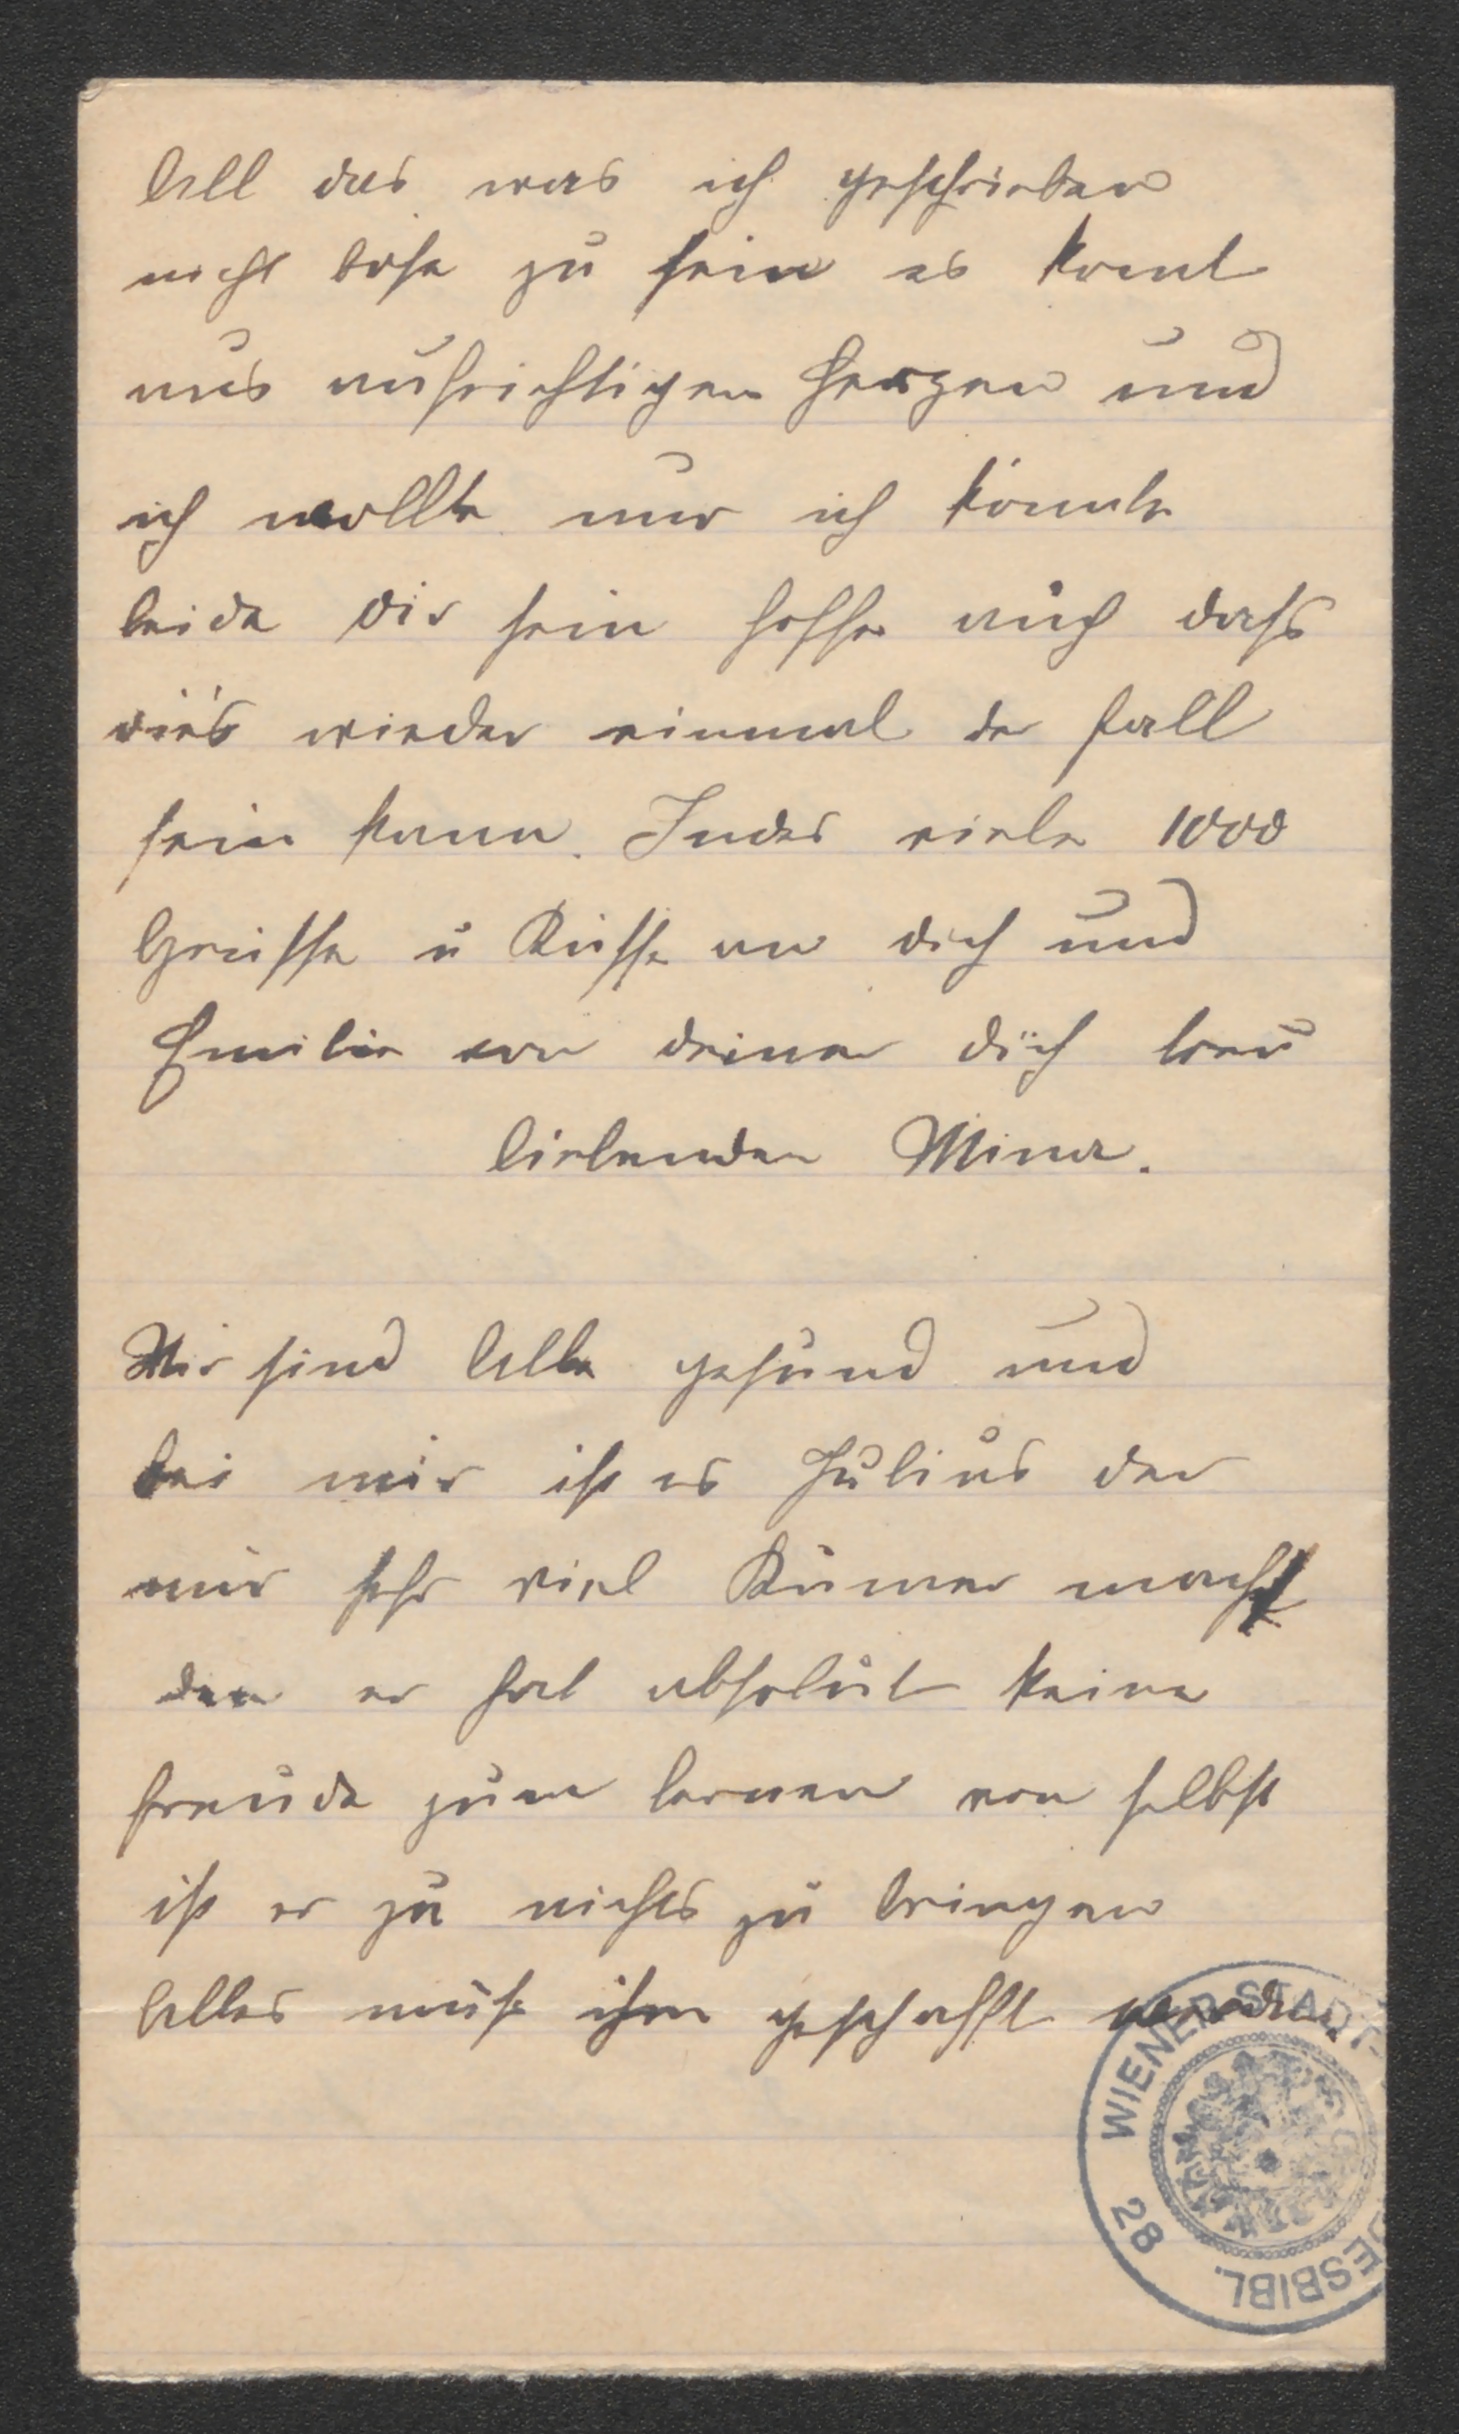 All das was ich geschrieben
nicht böse zu sein es komt
aus aufrichtigen Herzen und
ich wollte nur ich könnte
beide dir sein hoffe auch dass
dies wieder einmal der fall
sein kann. Indes viele 1000
Grüsse u Küsse an dich und
Emilie von deiner dich treu
liebenden Mina.
Wir sind Alle gesund und
bei mir ist es Julius der
mir sehr viel Kumer macht
den er hat absolut keine
freude zum lernen von selbst
ist er zu nichts zu bringen
Alles muß ihm geschafft werden.
WIENER STADT-
DESBIBL.
28